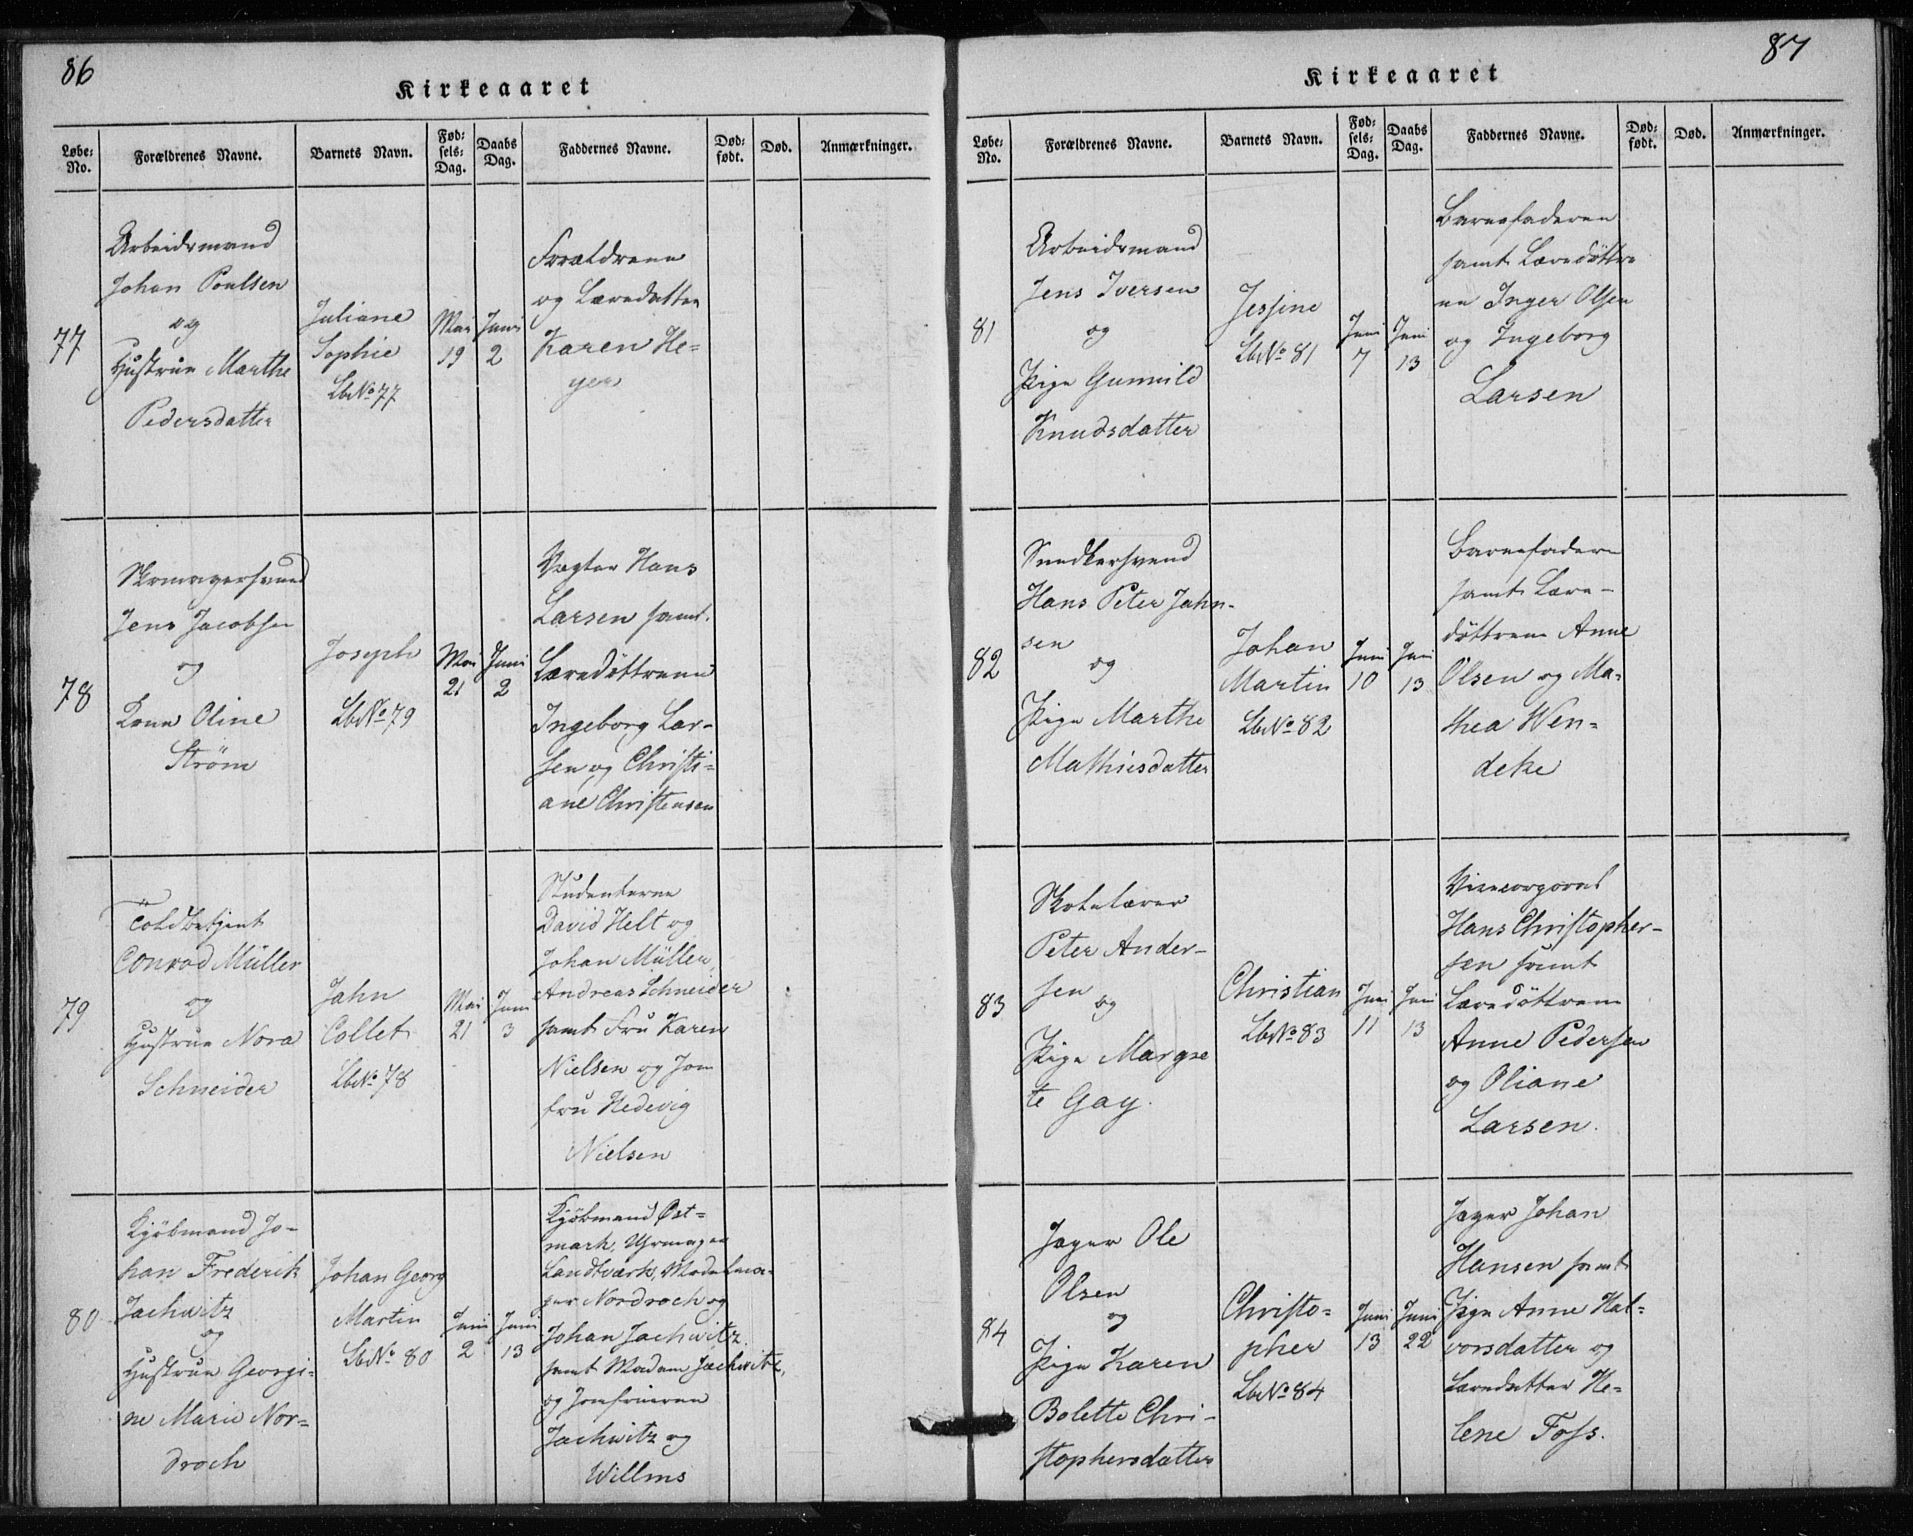 86
Kirkeaaret
Løbe-No.
Forældrenes Navne.
Barnets Navn.
Fødselsdag.
Daabs Dag.
Faddernes Navne.
Dødfødt.
Død.
Anmærkninger.
77
Arbeidsmand
Johan Poulsen
og
Hustrue Marthe
Pedersdatter
Juliane
Sophie
Lb No 77
Mai
19
Juni
2
Forældrene
og Læredatter
Karen He-
yer
78
Skomagersvend
Jens Jacobsen
og
Kone Oline
Strøm
Joseph
Lb No 79
Mai
21
Juni
2
Vægter Hans
Larsen samt
Læredøttrene
Ingeborg Lar-
sen og Christi-
ane Christensen
79
Toldbetjent
Conrad Müller
og
Hustrue Nora
Schneider
Jahn
Collet
Lb No 78
Mai
21
Juni
3
Studenterne
David Helt og
Johan Müller,
Andreas Schneider
samt Fru Karen
Nielsen og Jom
fru Hedevig
Nielsen
80
Kjøbmand Jo-
han Frederik
Jachwitz
og
Hustrue Georgi-
ne Marie Nor-
droch
Johan Georg
Martin
Lb No 80
Juni
2
Juni
13
Kjøbmand Øst-
mark, Uhrmager
Landtværk,
Nordroch og
Johan Jachwitz
samt Madam Jachwitz,
og Jomfruerne
Jachwitz og
Willms
87
Kirkeaaret
Løbe-No.
Forældrenes Navne.
Barnets Navn.
Fødselsdag.
Daabs Dag.
Faddernes Navne.
Dødfødt.
Død.
Anmærkninger.
81
Arbeidsmand
Jens Iversen
og
Pige Gunnild
Knudsdatter
Jessine
Lb No 81
Juni
7
Juni
13
Barnefaderen
samt Læredøttre
ne Inger Olsen
og Ingeborg
Larsen
82
Snedkersvend
Hans Peter Jahn-
sen
og
Pige Marthe
Mathisdatter
Johan
Martin
Lb No 82
Juni
10
Juni
13
Barnefaderen
samt Lære-
døttrene Anne
Olsen og Ma-
thea Wen-
deke
83
Skolelærer
Peter Ander-
sen
og
Pige Margre
te Gay.
Christian
Lb No 83
Juni
11
Juni
13
Hans Christopher-
sen samt
Læredøttrene
Anne Pedersen
og Oliane
Larsen.
84
Jæger Ole
Olsen
og
Pige Karen
Bolette Chri-
stophersdatter
Christo-
pher
Lb No 84
Juni
13
Juni
22
Jæger Johan
Hansen samt
Pige Anne Hal-
vorsdatter og
Læredatter He-
lene Foss.